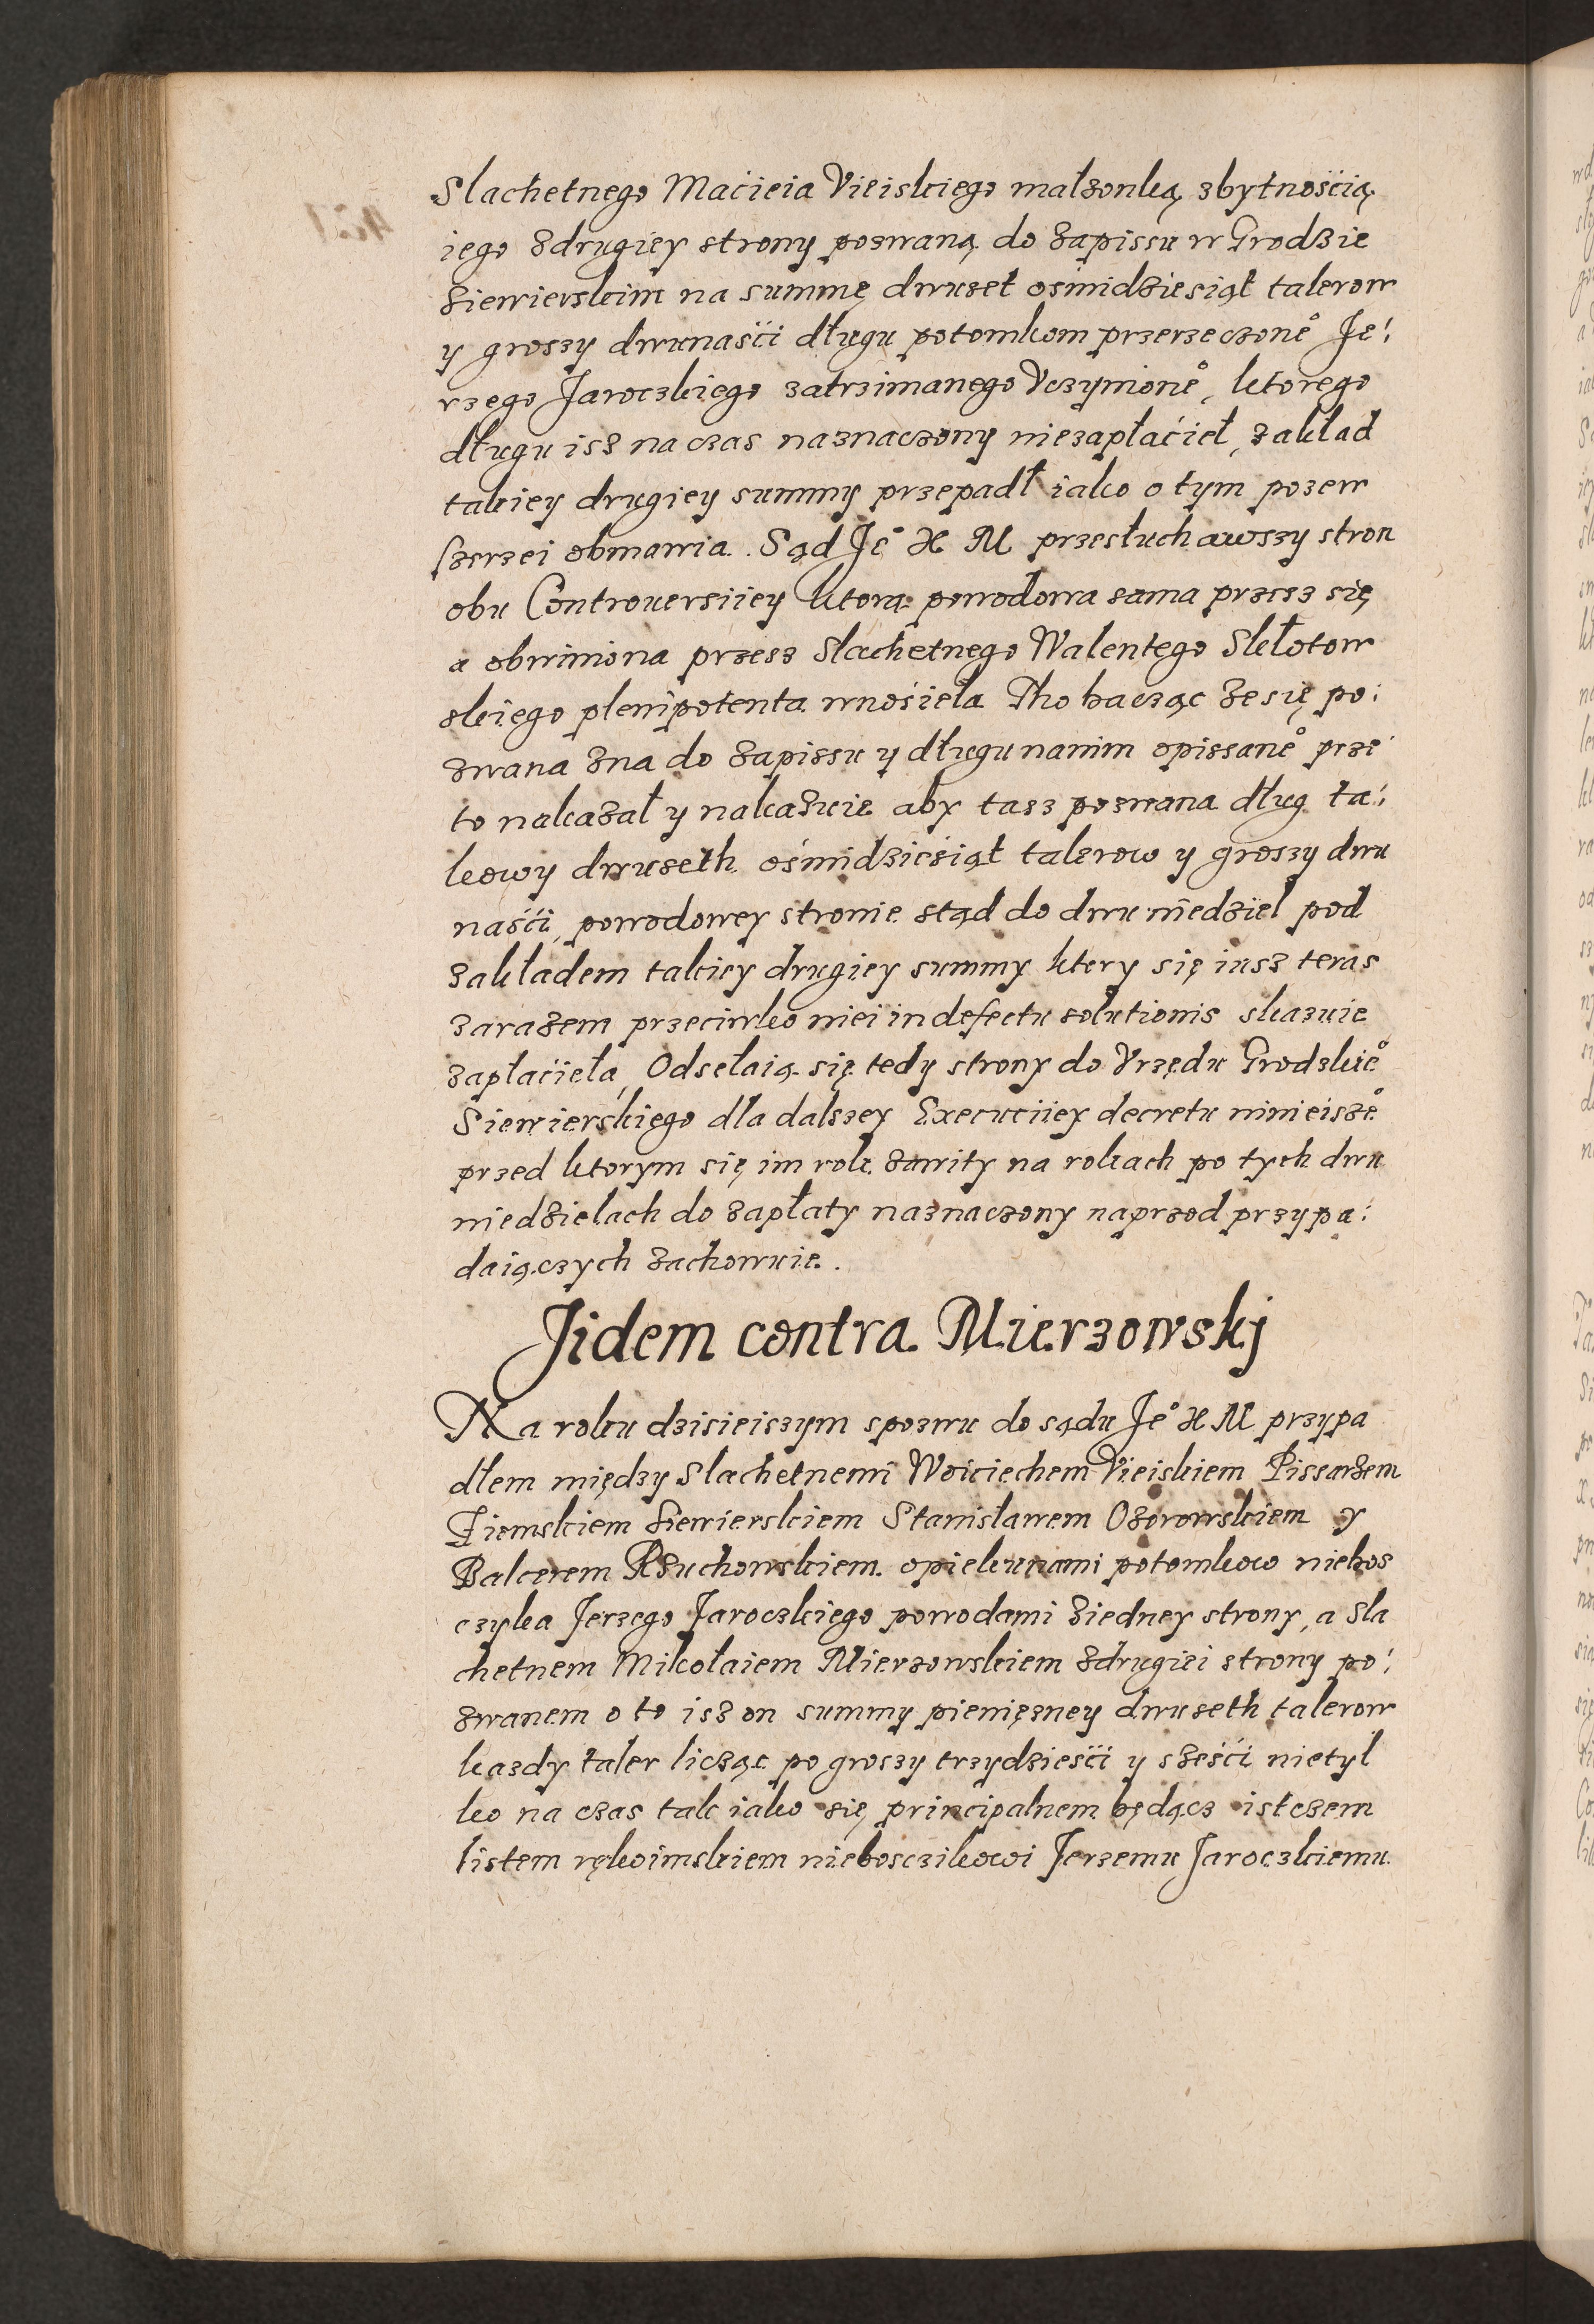 Slachetnego Maćieia Vieiskiego małzonką zbytnośćią
iego zdrugiey strony pozwaną do zapissu w Grodzie
Siewierskim na summę dwuset ośmidziesiąt talerow
y groszy dwunaśći długu potomkom przerzeczone° Je:
rzego Jaroczkiego zatrzimanego Vczynione°, ktorego
długu isz na czas naznaczony niezapłaćieł, zakład
takiey drugiey summy przepadł iako o tym pozew
szerzei obmawia. Sąd Je° X M przesłuchawszy stron
obu Controuersiiey ktorą powodowa sama przesz się
a obwiniona przesz Slachetnego Walentego Skłotow
skiego plenipotenta wnośieła Tho bacząc ze się po:
zwana zna do zapissu y długu nanim opissane° prze
to nakazał y nakazuie aby tasz pozwana dług ta:
kowy dwuseth ośmidzieśiąt talerow y groszy dwu
naśći, powodowey stronie stąd do dwu niedziel pod
zakładem takiey drugiey summy ktery się iusz teras
zarazem przeciwko niei in defectu solutionis skazuie
zapłaćieła, Odsełaią się tedy strony do Vrzędu Grodzkie°
Siewierskięgo dla dalszey Execuciiey decretu ninieisze°
przed ktorym się im rok zawity na rokach po tych dwu
niedzielach do zapłaty naznaczony naprzod przypa:
daiączych zachowuie.
Jidem contra Mierzowskj
Na roku dzisieiszym spozwu do sądu Je° X M przypa
dłem między Slachetnemi Woiciechem Vieiskiem Pissarzem
Ziemskiem Siewierskiem Stanisławem Ozorowskiem y
Balcerem Rzuchowskiem opiekunami potomkow niebos
czyka Jerzego Jaroczkiego powodami ziedney strony, a Sla
chetnem Mikołaiem Mierzowskiem zdrugiei strony po:
zwanem o to isz on summy pienięzney dwuseth talerow
kazdy taler licząc po groszy trzydzieśći y sześći nietyl
ko na czas tak iako się principalnem będącz istczem
listem rękoimskiem nieboszczikowi Jerzemu Jaroczkiemu